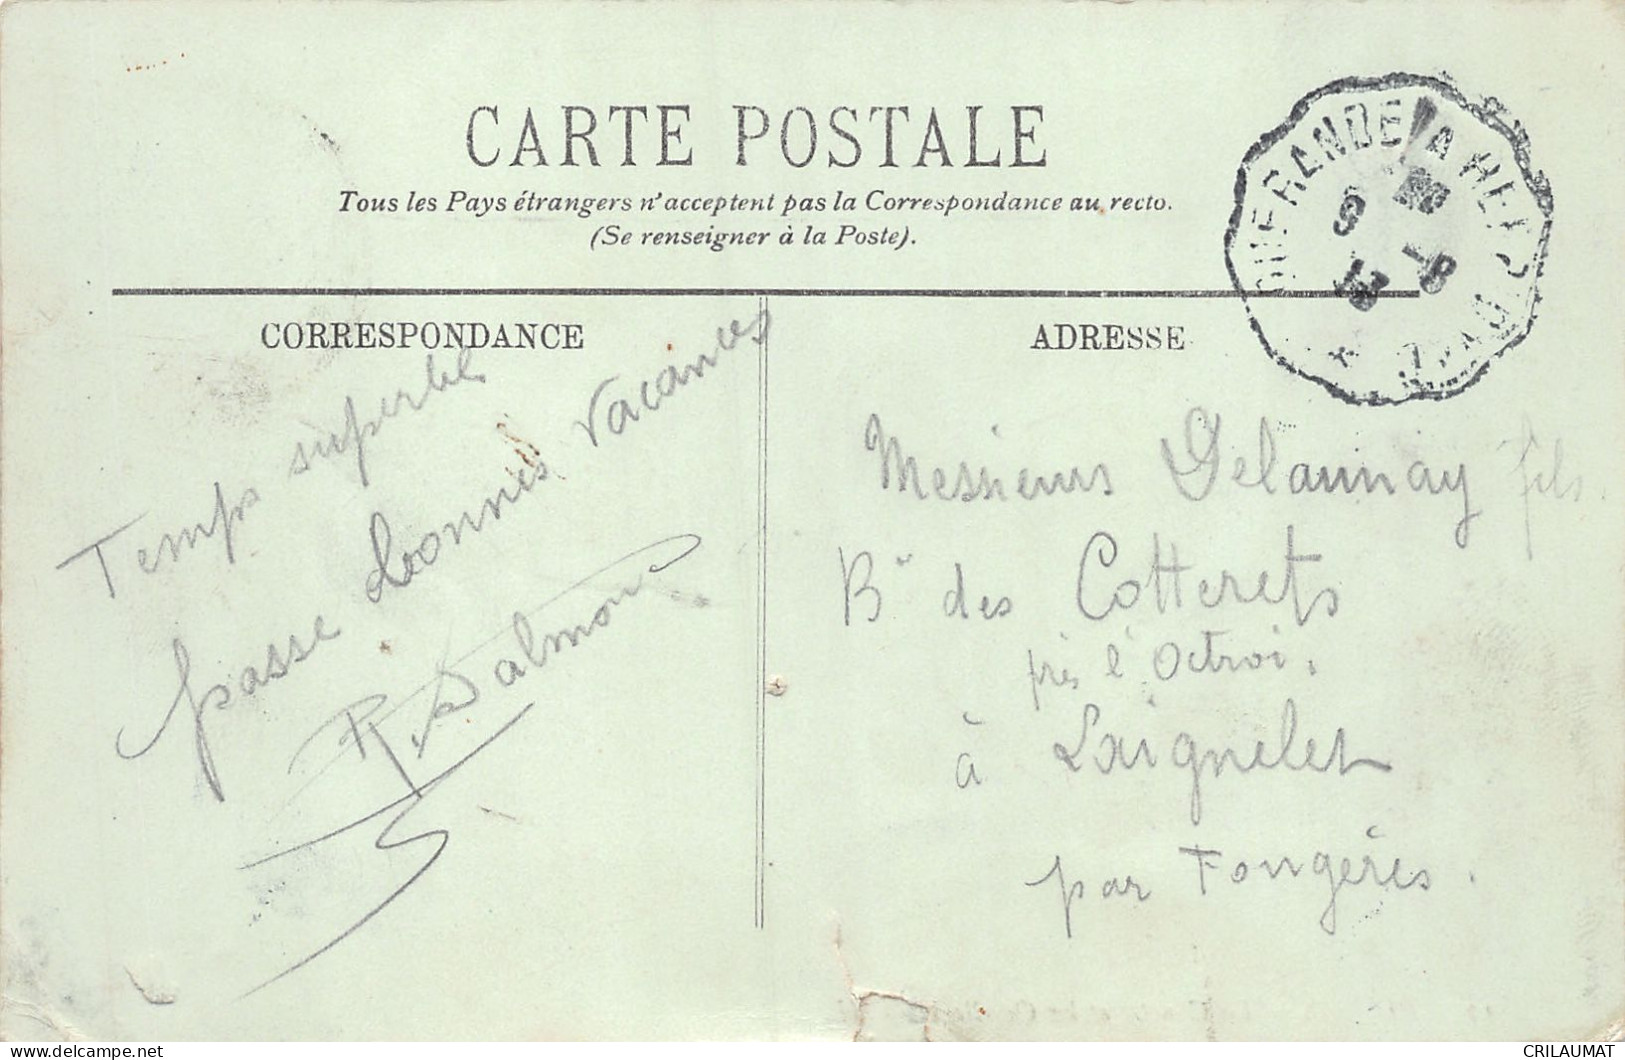 CARTE POSTALE
Tous les Pays étrangers n'acceptent pas la Correspondance au recto.
(Se renseigner à la Poste).
CORRESPONDANCE
Temps superbe
passe bonnes vacances
R. Dalmon
ADRESSE
Messieurs Delaunay fils.
Bd des Cotterets
près l'Octroi.
à Laignelet
par Fougères.
GUERANDE A
CRILAUMAT